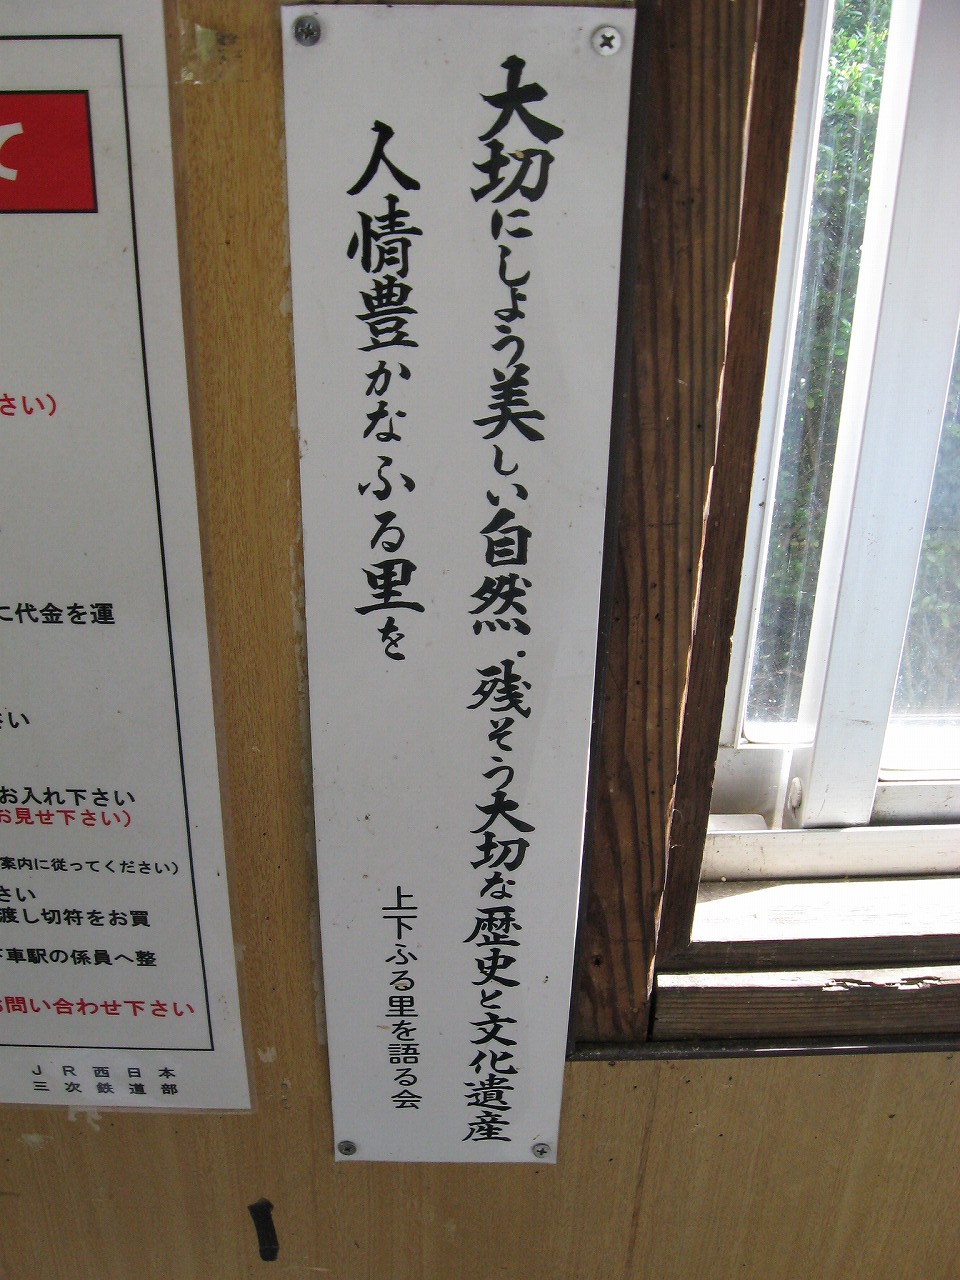 大切にしよう美しい自然・残そう大切な歴史と文化遺産
人情豊かなふる里を
上下ふる里を語る会
て
さい）
に代金を運
さい
お入れ下さい
お見せ下さい）
案内に従ってください）
さい
渡し切符をお買
下車駅の係員へ整
お問い合わせ下さい
ＪＲ西日本
三次鉄道部